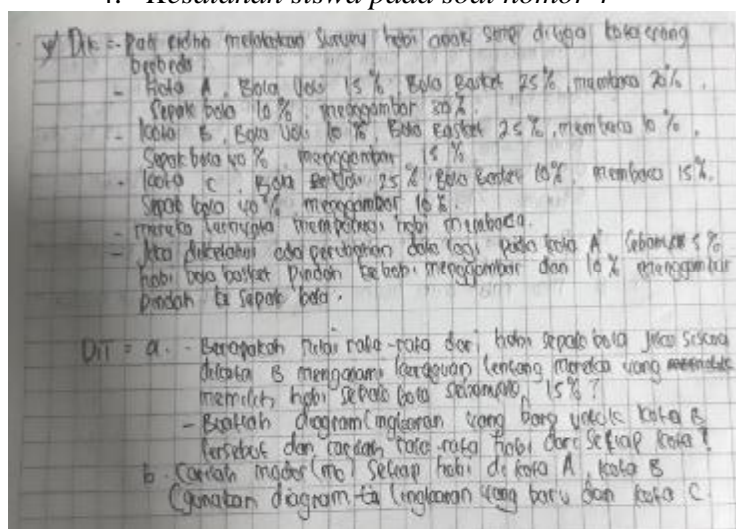 4. Kesalahan siswa pada soal nomor 4
4/ Dik = - Pak ridho melakukan survey hobi anak smp ditiga kota yang
berbeda
- Kota A, Bola Voli 15%, Bola Basket 25%, membaca 20%,
Sepak bola 10%, menggambar 30%.
- Kota B, Bola Voli 10%, Bola Basket 25%, membaca 10%,
Sepak bola 40%, menggambar 15%
- Kota C, Bola Voli 25%, Bola Basket 10%, membaca 15%,
Sepak bola 40%, menggambar 10%.
- mereka ternyata mempunyai hobi membaca.
- Jika diketahui ada perubahan data lagi pada kota A, sebanyak 5%
hobi bola basket pindah ke hobi menggambar dan 10% menggambar
pindah ke sepak bola.
DiT = a. - Berapakah nilai rata-rata dari hobi sepak bola jika siswa
dikota B mengalami keraguan tentang mereka yang
memilih hobi sepak bola sebanyak 15%?
- Buatlah diagram lingkaran yang baru untuk kota B
tersebut dan carilah rata-rata hobi dari setiap kota!
b. Carilah (mo) setiap hobi di kota A, kota B
(gunakan diagram lingkaran yang baru dan kota C